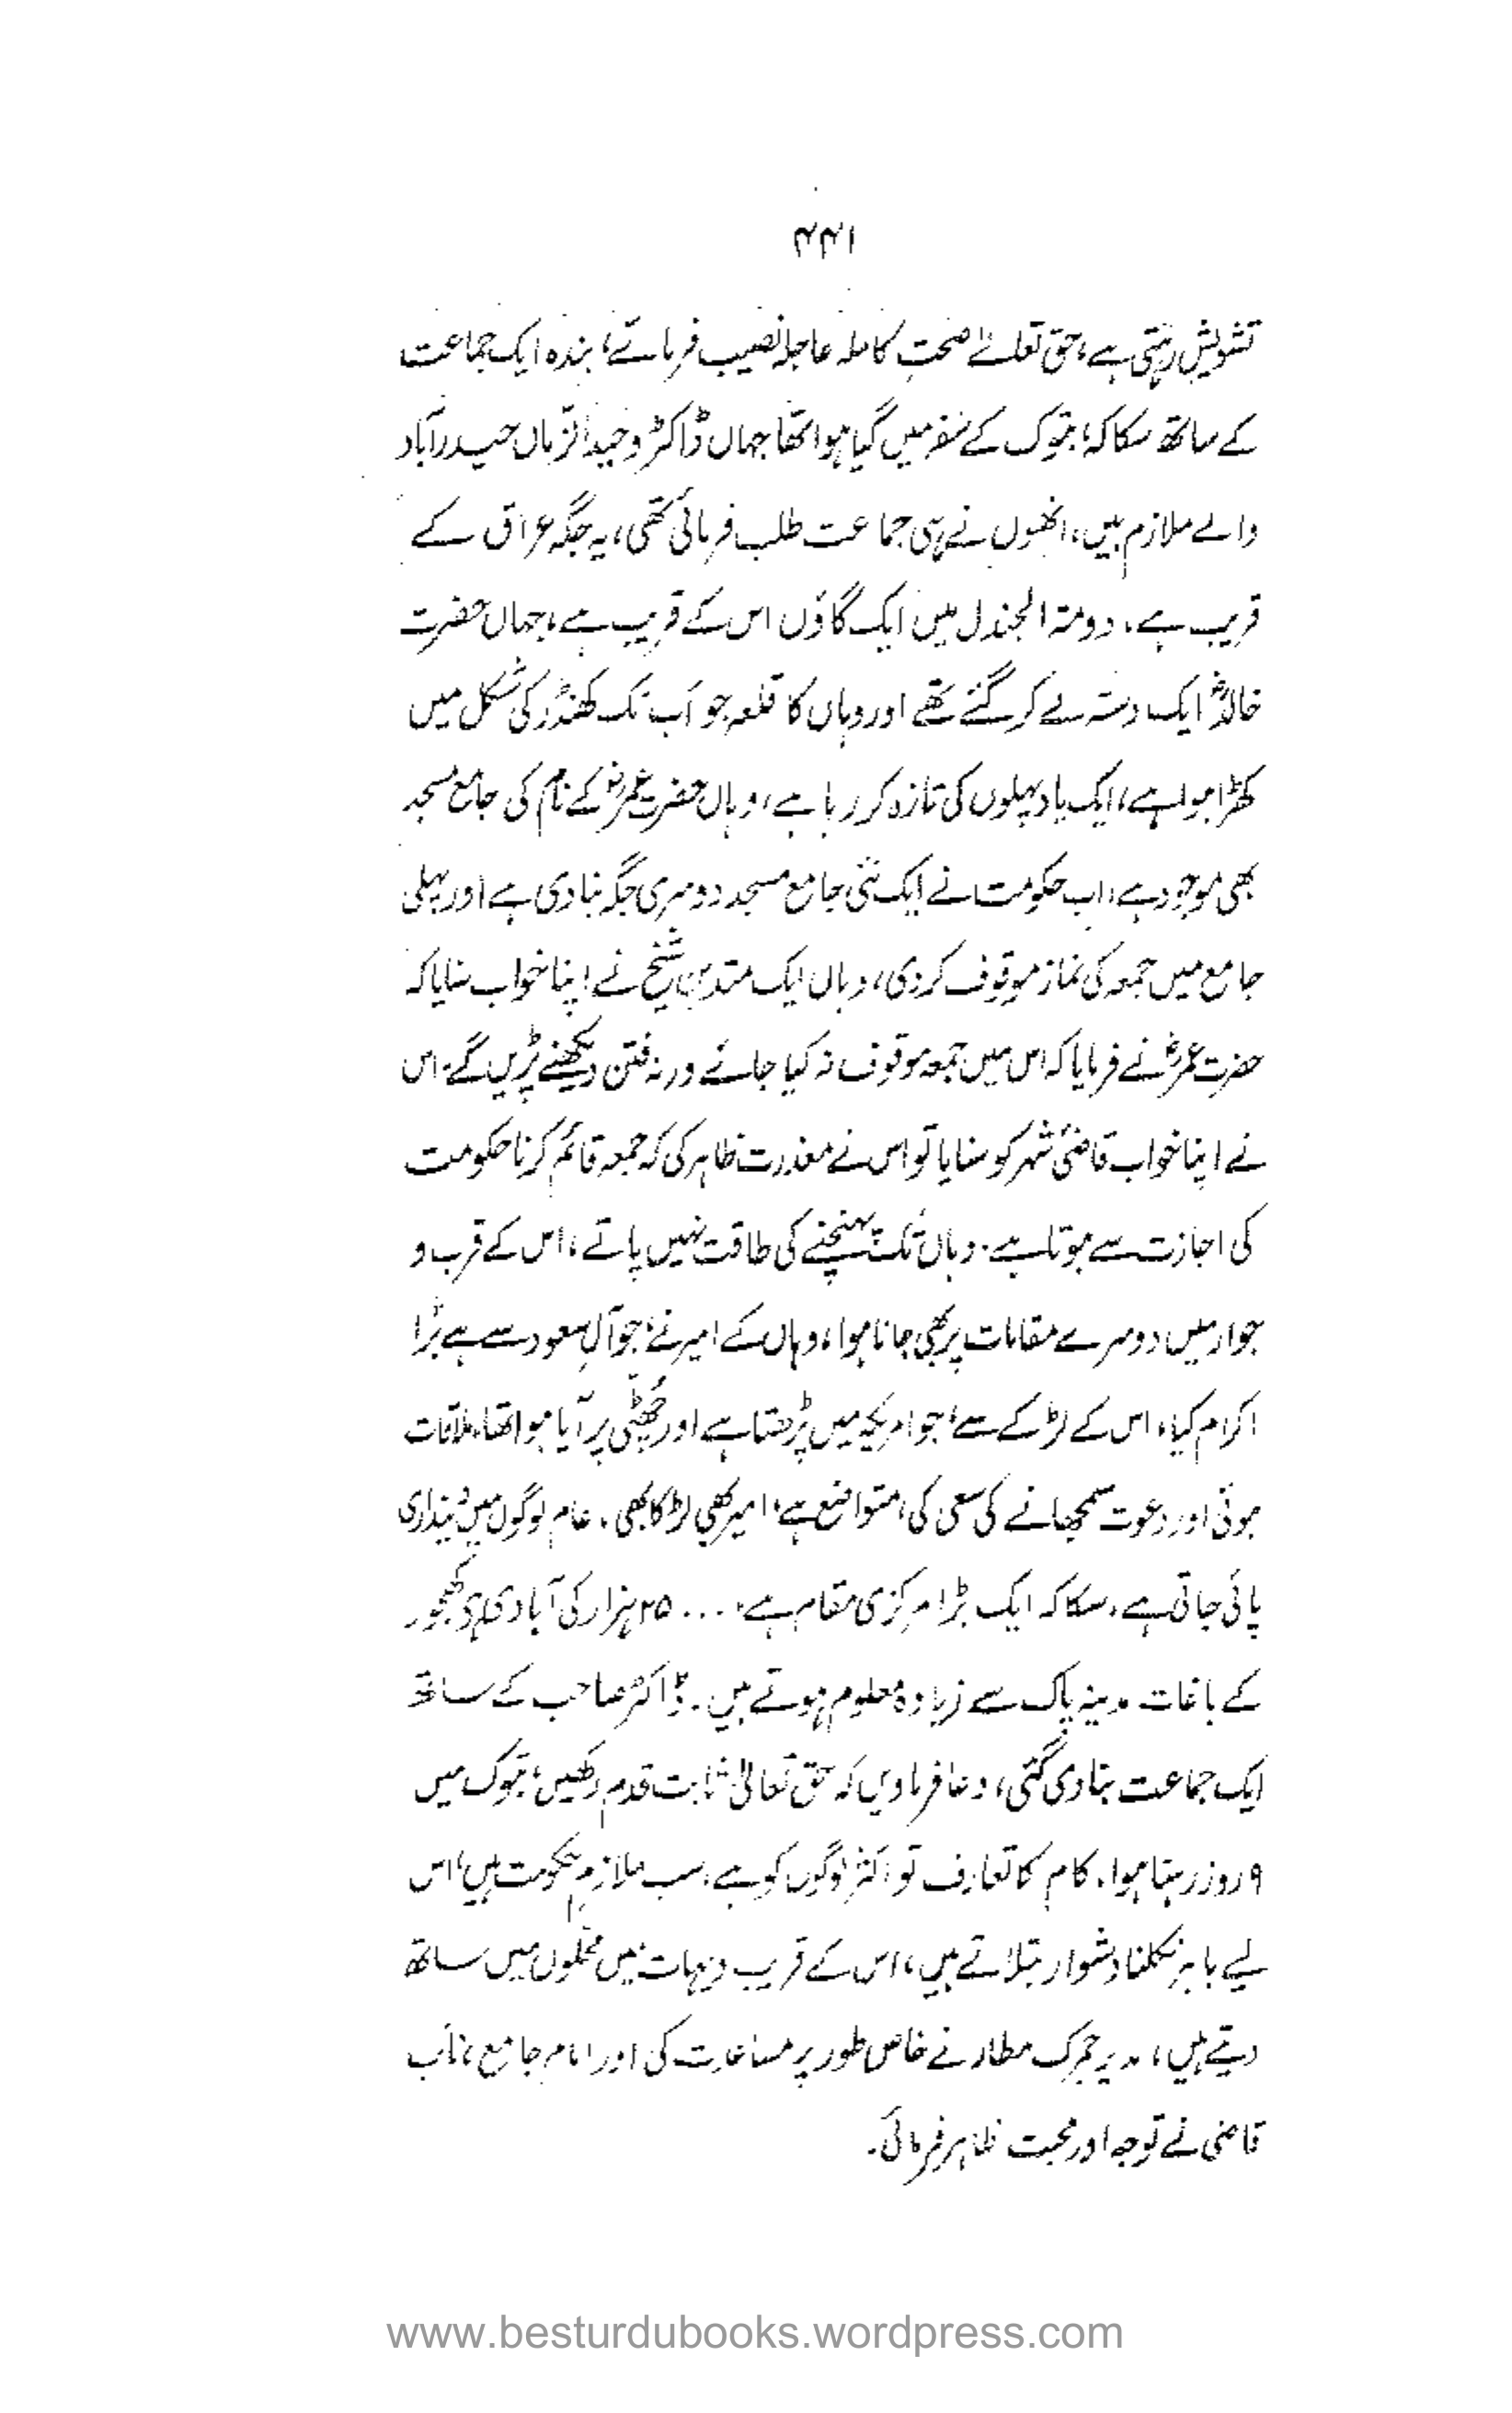 ۴۴۱
تشویش رہتی ہے، حق تعالےٰ صحتِ کاملہ عاجلہ نصیب فرمائے، بندہ ایک جماعت
کے ساتھ سکاکہ، تبوک کے سفر میں گیا ہوا تھا جہاں ڈاکٹر وحید الزّماں حیدرآباد
والے ملازم ہیں، انھوں نے ہی جماعت طلب فرمائی تھی، یہ جگہ عراق کے
قریب ہے، دومۃ الجندل میں ایک گاؤں اس کے قریب ہے، جہاں حضرت
خالدؓ ایک دستہ لے کر گئے تھے اور وہاں کا قلعہ جو اَب تک کھنڈر کی شکل میں
کھڑا ہوا ہے، ایک یاد پہلوں کی تازہ کر رہا ہے، وہاں حضرت عمرؓ کے نام کی جامع مسجد
بھی موجود ہے، اب حکومت نے ایک نئی جامع مسجد دوسری جگہ بنا دی ہے اور پہلی
جامع میں جمعہ کی نماز موقوف کر دی، وہاں ایک متدین شیخ نے اپنا خواب سنایا کہ
حضرت عمرؓ نے فرمایا کہ اس میں جمعہ موقوف نہ کیا جائے ورنہ فتن دیکھنے پڑیں گے، اس
نے اپنا خواب قاضیٔ شہر کو سنایا تو اس نے معذرت ظاہر کی کہ جمعہ قائم کرنا حکومت
کی اجازت سے ہوتا ہے۔ وہاں تک پہنچنے کی طاقت نہیں پاتے، اس کے قرب و
جوار میں دوسرے مقامات پر بھی جانا ہوا، وہاں کے امیر نے، جو آلِ سعود سے ہے بڑا
اکرام کیا، اس کے لڑکے سے، جو امریکہ میں پڑھتا ہے اور چُھٹی پر آیا ہوا تھا، ملاقات
ہوئی اور دعوت سمجھانے کی سعی کی، متواضع ہے، امیر بھی لڑکا بھی۔ عام لوگوں میں دینداری
پائی جاتی ہے، سکاکہ ایک بڑا مرکزی مقام ہے، ... ۲۵ ہزار کی آبادی ہے، کھجور
کے باغات مدینہ پاک سے زیادہ معلوم ہوتے ہیں۔ ڈاکٹر صاحب کے ساتھ
ایک جماعت بنا دی گئی، دعا فرماویں کہ حق تعالیٰ ثابت قدم رکھیں، تبوک میں
۹ روز رہنا ہوا، کام کا تعارف تو اکثر لوگوں کو ہے، سب ملازم حکومت ہیں، اس
لیے باہر نکلنا دشوار بتلاتے ہیں، اس کے قریب دیہات میں محلوں میں ساتھ
دیتے ہیں، مدیر جمرک مطار نے خاص طور پر مساعدت کی اور امام جامع، نائب
قاضی نے توجہ اور محبت ظاہر فرمائی۔
www.besturdubooks.wordpress.com